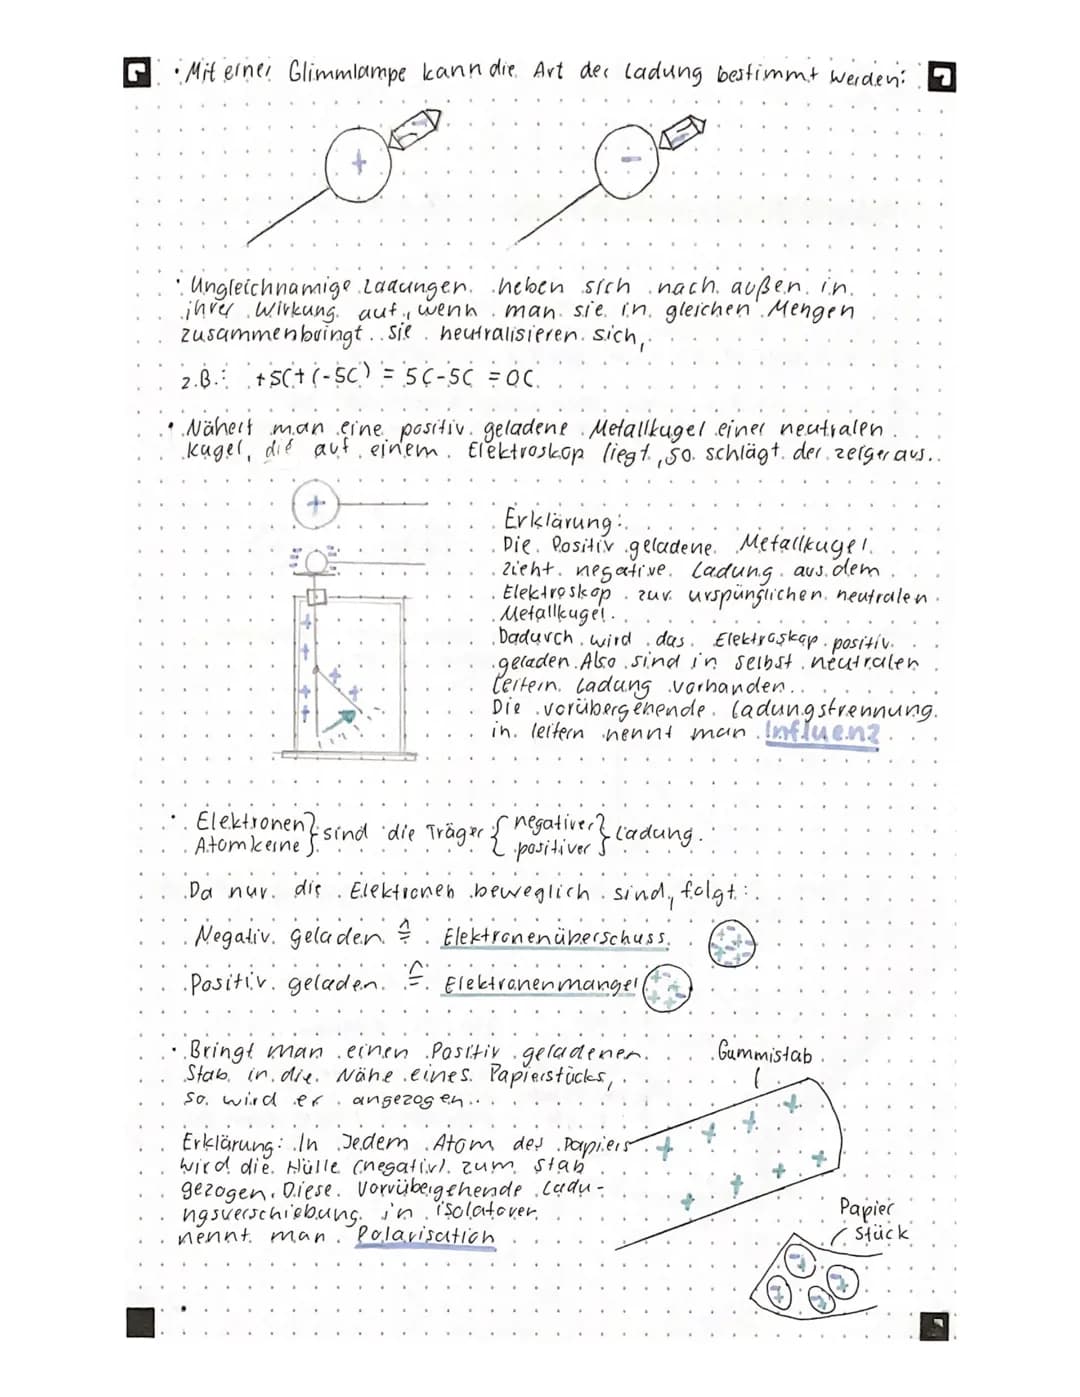 • Mit einer Glimmlampe kann die Art der Ladung bestimmt werden:
+
-
• Ungleichnamige Ladungen heben sich nach außen in
ihrer Wirkung auf, wenn man sie in gleichen Mengen
zusammenbringt. sie neutralisieren sich,
z.B.: +5C+(-5C) = 5C-5C = 0C
• Nähert man eine positiv geladene Metallkugel einer neutralen
kugel, die auf einem Elektroskop liegt, so schlägt der zeiger aus.
+
Erklärung:
Die Positiv geladene Metallkugel
zieht negative Ladung aus dem
Elektroskop zur urspünglichen neutralen
Metallkugel.
Dadurch wird das Elektroskop positiv
geladen. Also sind in selbst neutralen
Leitern Ladung vorhanden.
Die vorübergehende Ladungstrennung
in leitern nennt man Influenz
• Elektronen } sind die Träger { negativer } Ladung.
Atomkerne } { positiver }
Da nur die Elektronen beweglich sind, folgt:
Negativ geladen ≙ Elektronenüberschuss
Positiv geladen ≙ Elektronenmangel
• Bringt man einen Positiv geladenen
Stab in die Nähe eines Papierstücks,
so wird er angezogen.
Gummistab
Erklärung: In Jedem Atom des Papiers
wird die Hülle (negativ) zum Stab
gezogen. Diese Vorvübergehende Ladu-
ngsverschiebung in isolatoren
nennt man Polarisation
Papier
Stück